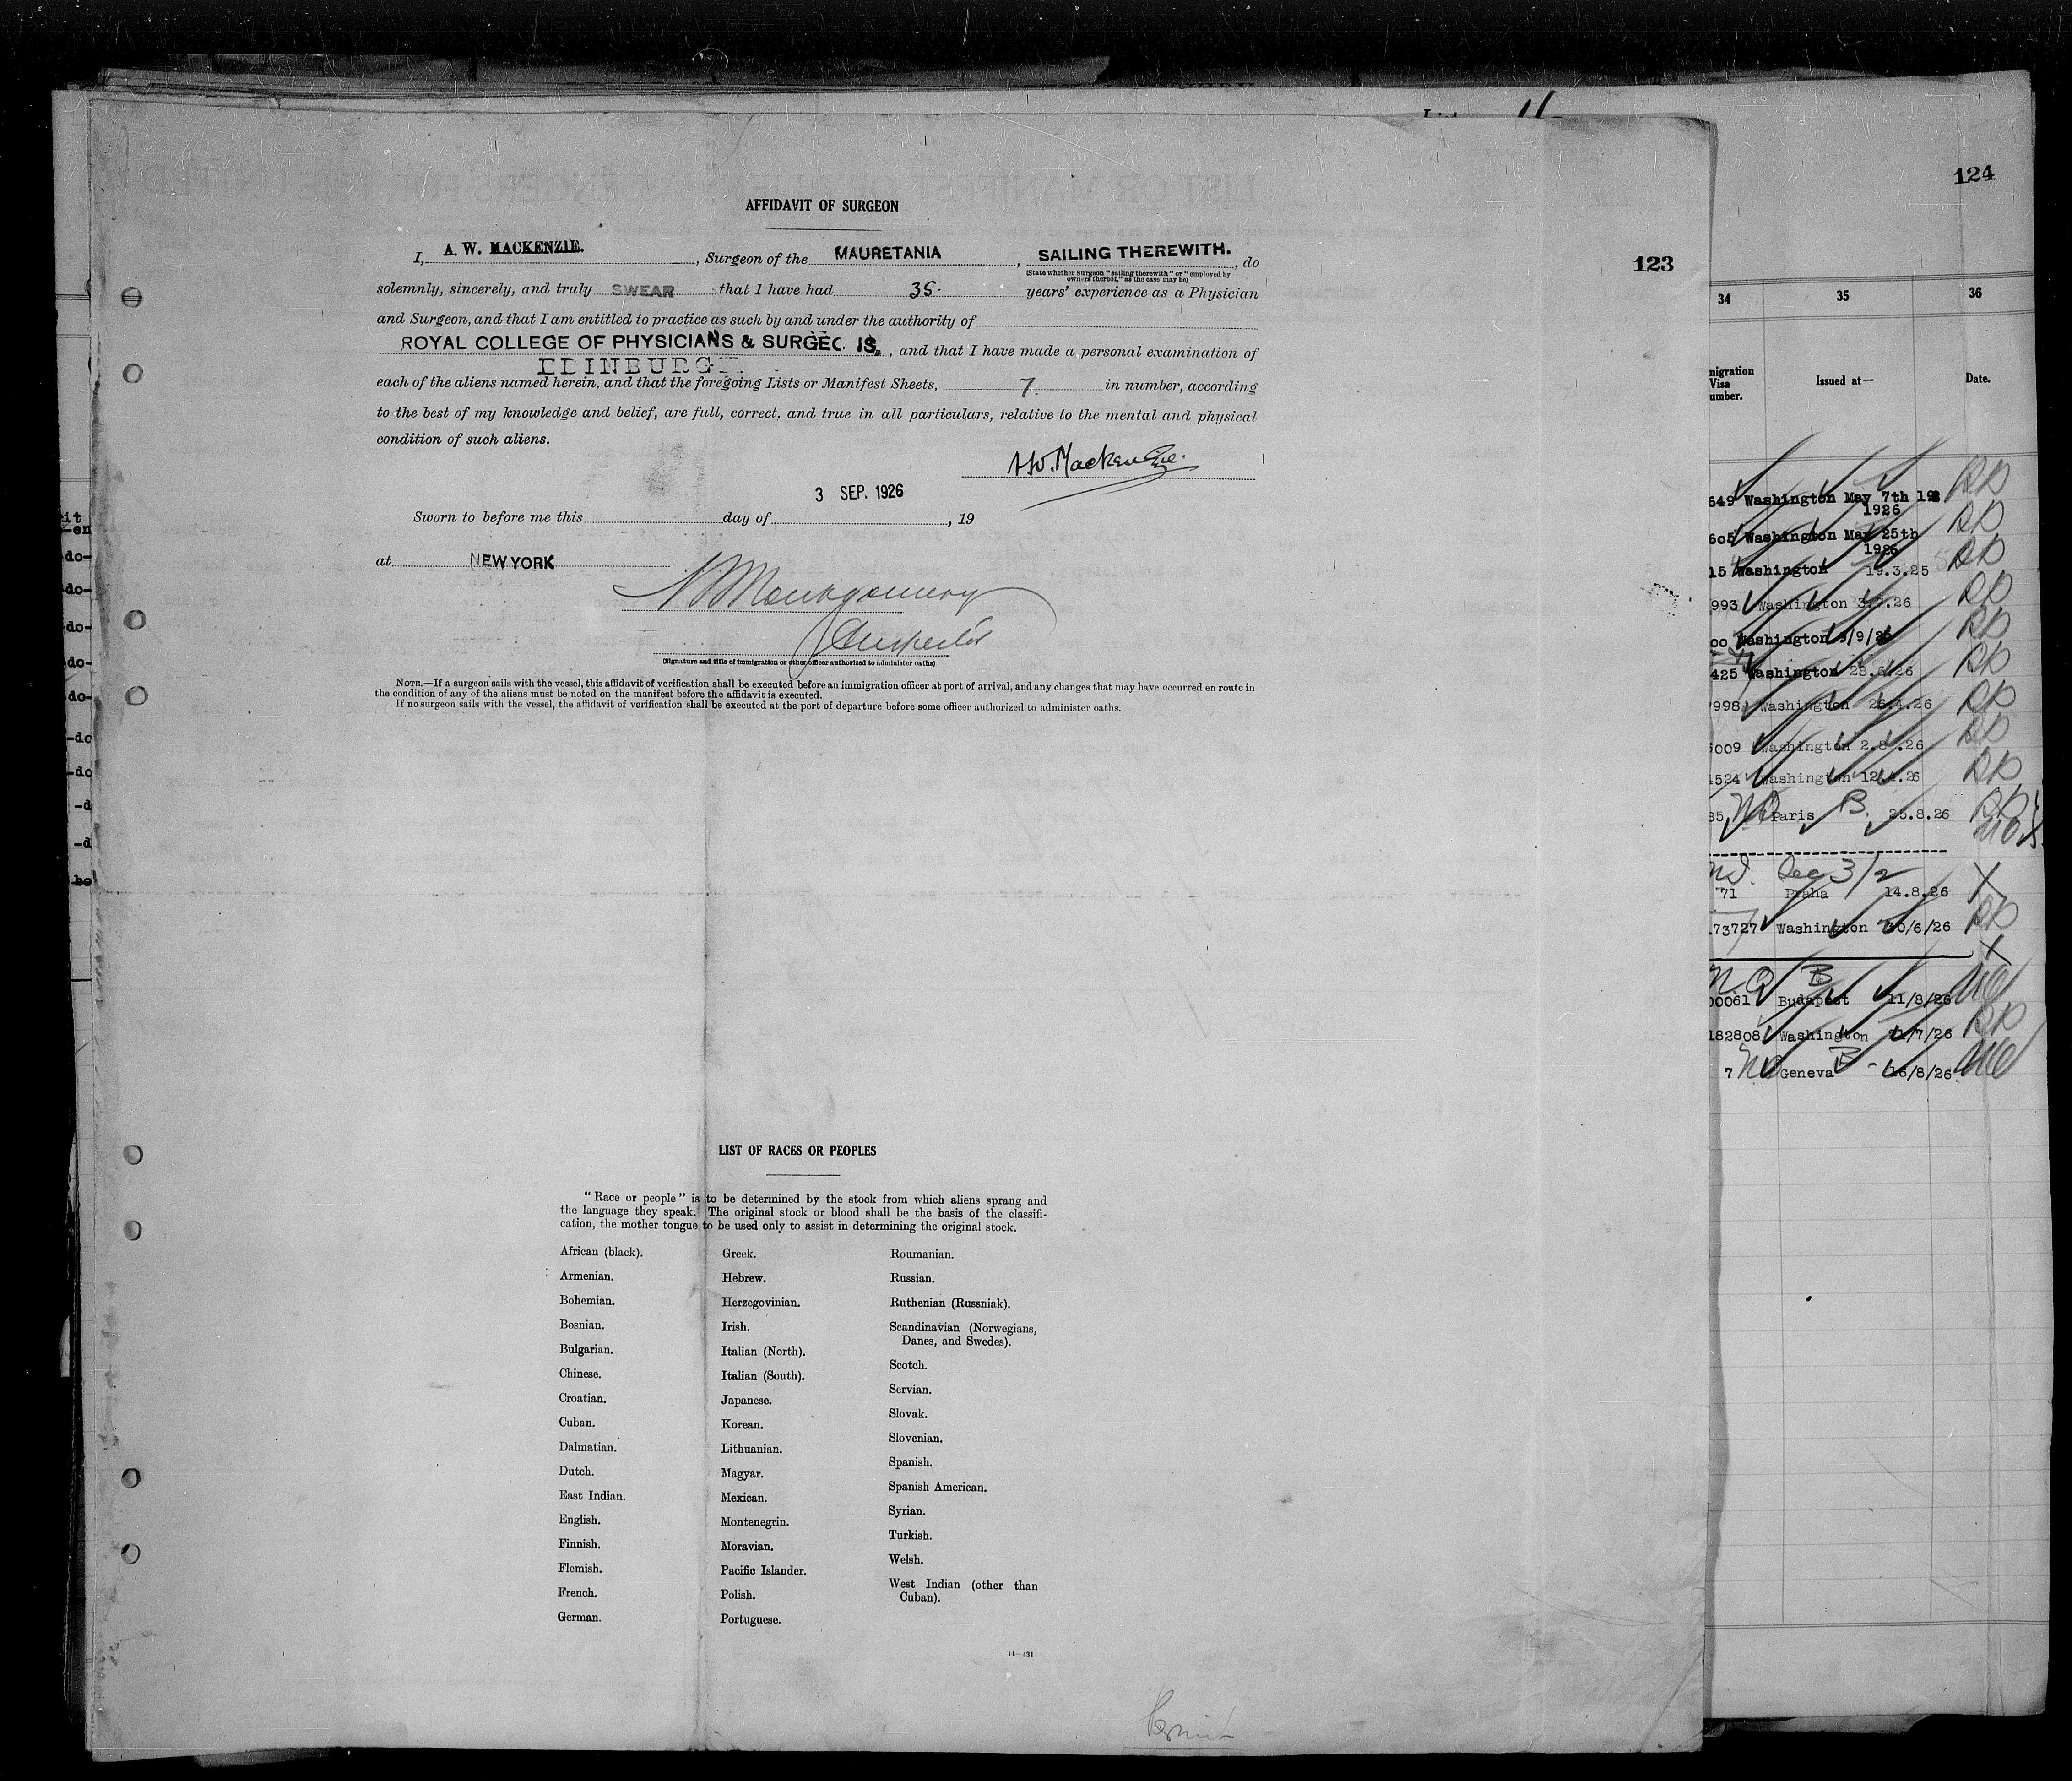 124
123
AFFIDAVIT OF SURGEON
I, A. W. MACKENZIE. , Surgeon of the MAURETANIA , SAILING THEREWITH. , do
(State whether Surgeon "sailing therewith" or "employed by
owners thereof," as the case may be)
solemnly, sincerely, and truly SWEAR that I have had 35. years' experience as a Physician
and Surgeon, and that I am entitled to practice as such by and under the authority of
ROYAL COLLEGE OF PHYSICIANS & , and that I have made a personal examination of
EDINBURGH
each of the aliens named herein, and that the foregoing Lists or Manifest Sheets, 7. in number, according
to the best of my knowledge and belief, are full, correct, and true in all particulars, relative to the mental and physical
condition of such aliens.
A.W. Mackenzie.
3 SEP. 1926
Sworn to before me this day of , 19
at NEW YORK
Montgomery
Inspector
(Signature and title of immigration or other officer authorized to administer oaths)
NOTE.—If a surgeon sails with the vessel, this affidavit of verification shall be executed before an immigration officer at port of arrival, and any changes that may have occurred en route in
the condition of any of the aliens must be noted on the manifest before the affidavit is executed.
If no surgeon sails with the vessel, the affidavit of verification shall be executed at the port of departure before some officer authorized to administer oaths.
LIST OF RACES OR PEOPLES
"Race or people" is to be determined by the stock from which aliens sprang and
the language they speak. The original stock or blood shall be the basis of the classifi-
cation, the mother tongue to be used only to assist in determining the original stock.
African (black).
Armenian.
Bohemian.
Bosnian.
Bulgarian.
Chinese.
Croatian.
Cuban.
Dalmatian.
Dutch.
East Indian.
English.
Finnish.
Flemish.
French.
German.
Greek.
Hebrew.
Herzegovinian.
Irish.
Italian (North).
Italian (South).
Japanese.
Korean.
Lithuanian.
Magyar.
Mexican.
Montenegrin.
Moravian.
Pacific Islander.
Polish.
Portuguese.
Roumanian.
Russian.
Ruthenian (Russniak).
Scandinavian (Norwegians,
Danes, and Swedes).
Scotch.
Servian.
Slovak.
Slovenian.
Spanish.
Spanish American.
Syrian.
Turkish.
Welsh.
West Indian (other than
Cuban).
34 35 36
migration
Visa
umber.
Issued at—
Date.
649 Washington May 7th
1926
605 Washington May 25th
1926
15 Washington 19.3.25
993 Washington 3.7.26
00 Washington
425 Washington 28.6.26
998 Washington 26.4.26
009 Washington 2.8.26
524 Washington 12.4.26
35 Paris B 25.8.26
71 Praha 14.8.26
73727 Washington /6/26
00061 Budapest B 11/8/26
182808 Washington /7/26
7 Geneva B 16/8/26